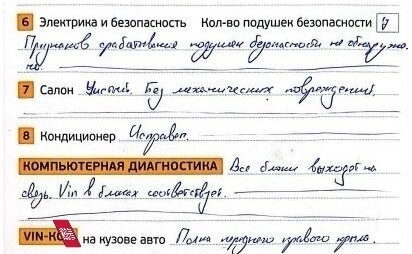 6 Электрика и безопасность Кол-во подушек безопасности 7
Признаков срабатывания подушек безопасности не обнаруже-
но.
7 Салон Чистый. Без механических повреждений.
8 Кондиционер Исправен.
КОМПЬЮТЕРНАЯ ДИАГНОСТИКА Все блоки выходят на
связь. Vin в блоках соответствует.
VIN-КОД на кузове авто Полка переднего правого крыла.